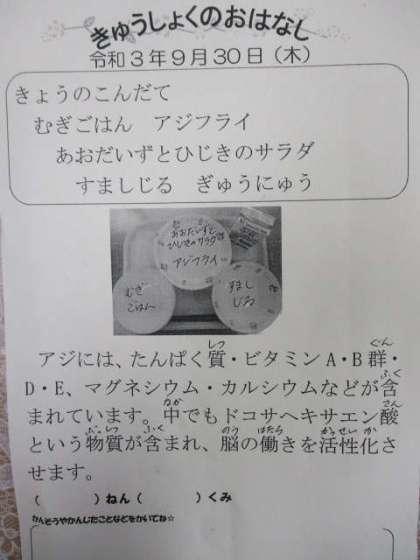 きゅうしょくのおはなし
令和3年9月30日(木)
きょうのこんだて
むぎごはん アジフライ
あおだいずとひじきのサラダ
すましじる ぎゅうにゅう
あおだいずと
ひじきのサラダ
アジフライ
むぎ
ごはん
すまし
じる
アジには、たんぱく質・ビタミンA・B群・
D・E、マグネシウム・カルシウムなどが含
まれています。中でもドコサヘキサエン酸
という物質が含まれ、脳の働きを活性化さ
せます。
( )ねん( )くみ
かんそうやかんじたことなどをかいてね☆